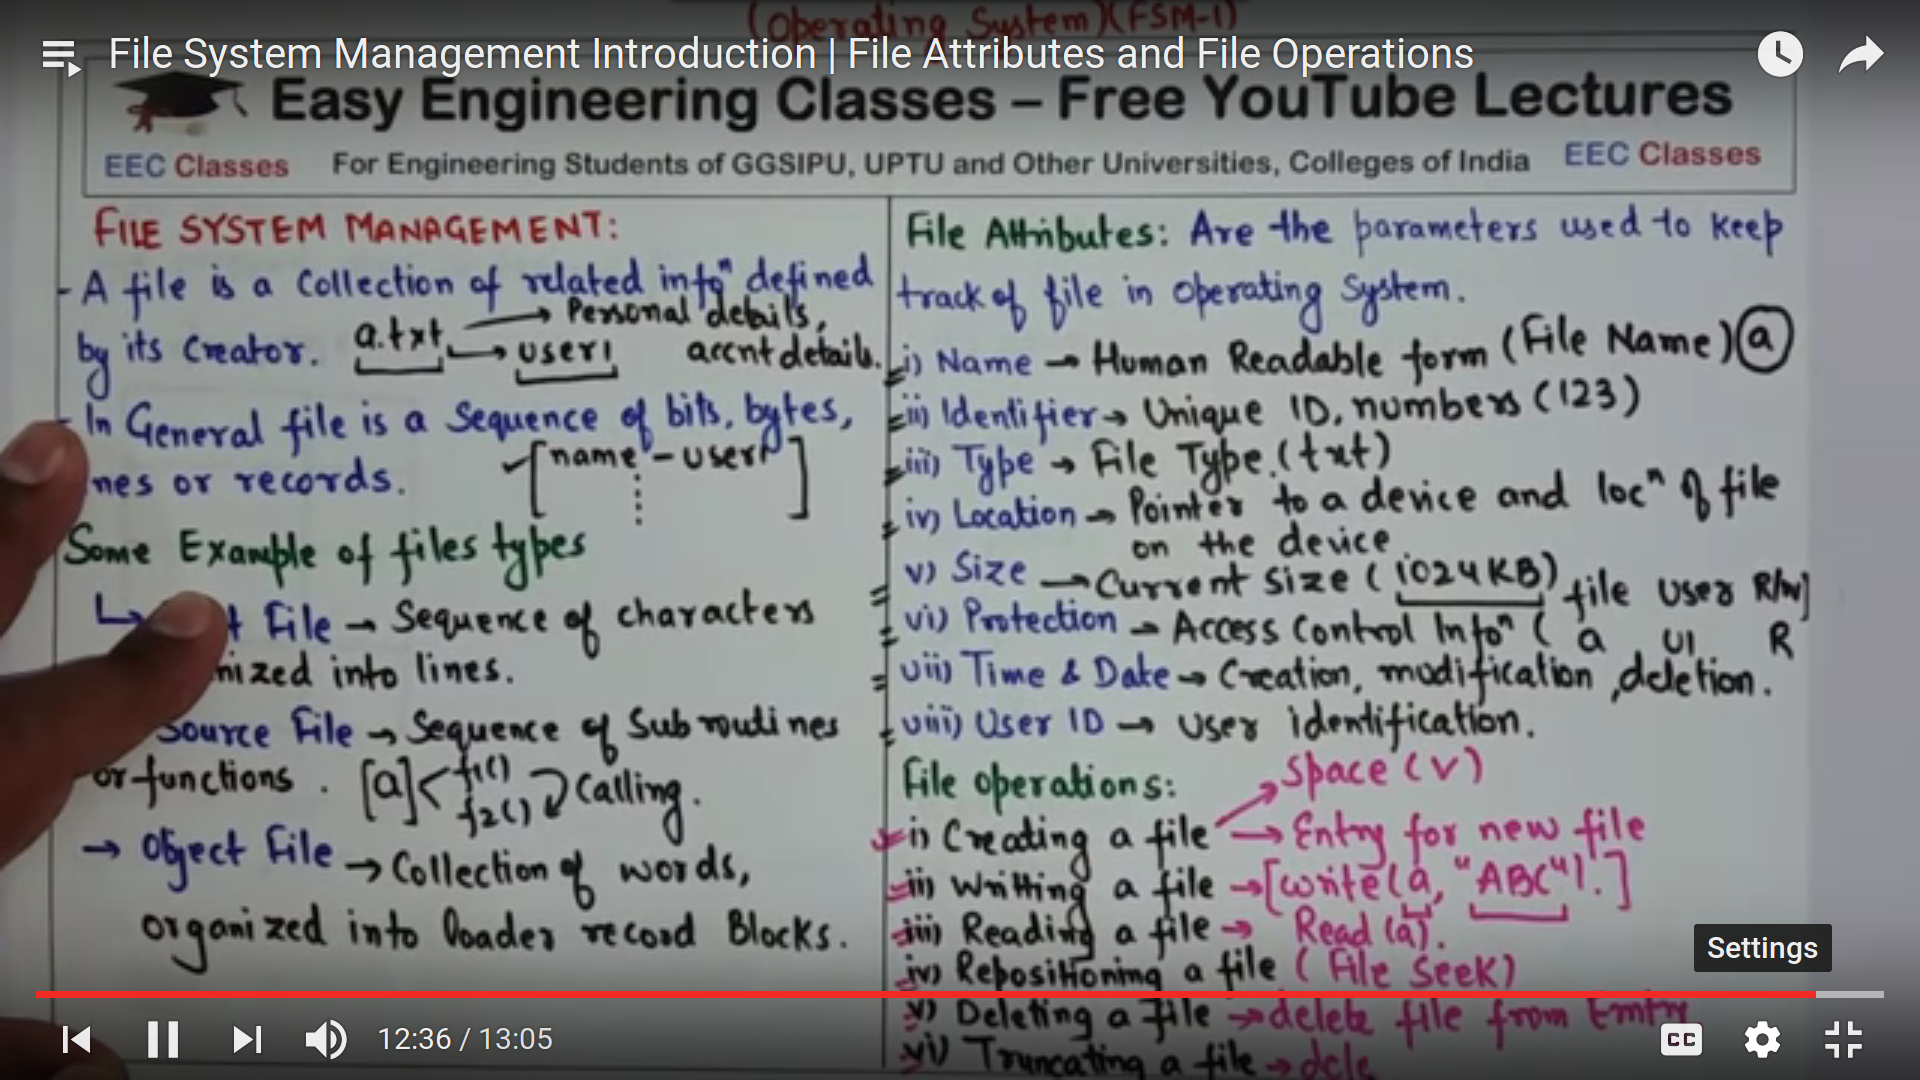 (Operating System)(FSM-1)
File System Management Introduction | File Attributes and File Operations
Easy Engineering Classes – Free YouTube Lectures
EEC Classes For Engineering Students of GGSIPU, UPTU and Other Universities, Colleges of India EEC Classes
FILE SYSTEM MANAGEMENT:
- A file is a Collection of related infoⁿ defined
by its Creator. a.txt → Personal details,
→ user1 accnt details.
- In General file is a Sequence of bits, bytes,
nes or records. [name - user1
]
Some Example of files types
↳ t File → Sequence of characters
nized into lines.
Source File → Sequence of Subroutines
or functions. [a] < f1()
f2() Calling.
→ Object File → Collection of words,
organized into loader record Blocks.
File Attributes: Are the parameters used to keep
track of file in operating System.
i) Name → Human Readable form (File Name) a
ii) Identifier → Unique ID, numbers (123)
iii) Type → File Type. (txt)
iv) Location → Pointer to a device and locⁿ of file
on the device
v) Size → Current size (1024KB)
file User R/W]
vi) Protection → Access Control Infoⁿ ( a U1 R
vii) Time & Date → Creation, modification, deletion.
viii) User ID → User identification.
File operations: → Space (V)
i) Creating a file → Entry for new file
ii) Writting a file → [write(a, "ABC").]
iii) Reading a file → Read (a).
iv) Repositioning a file ( File Seek)
v) Deleting a file → delete file from Entry
vi) Truncating a file → dele
Settings
12:36 / 13:05
CC